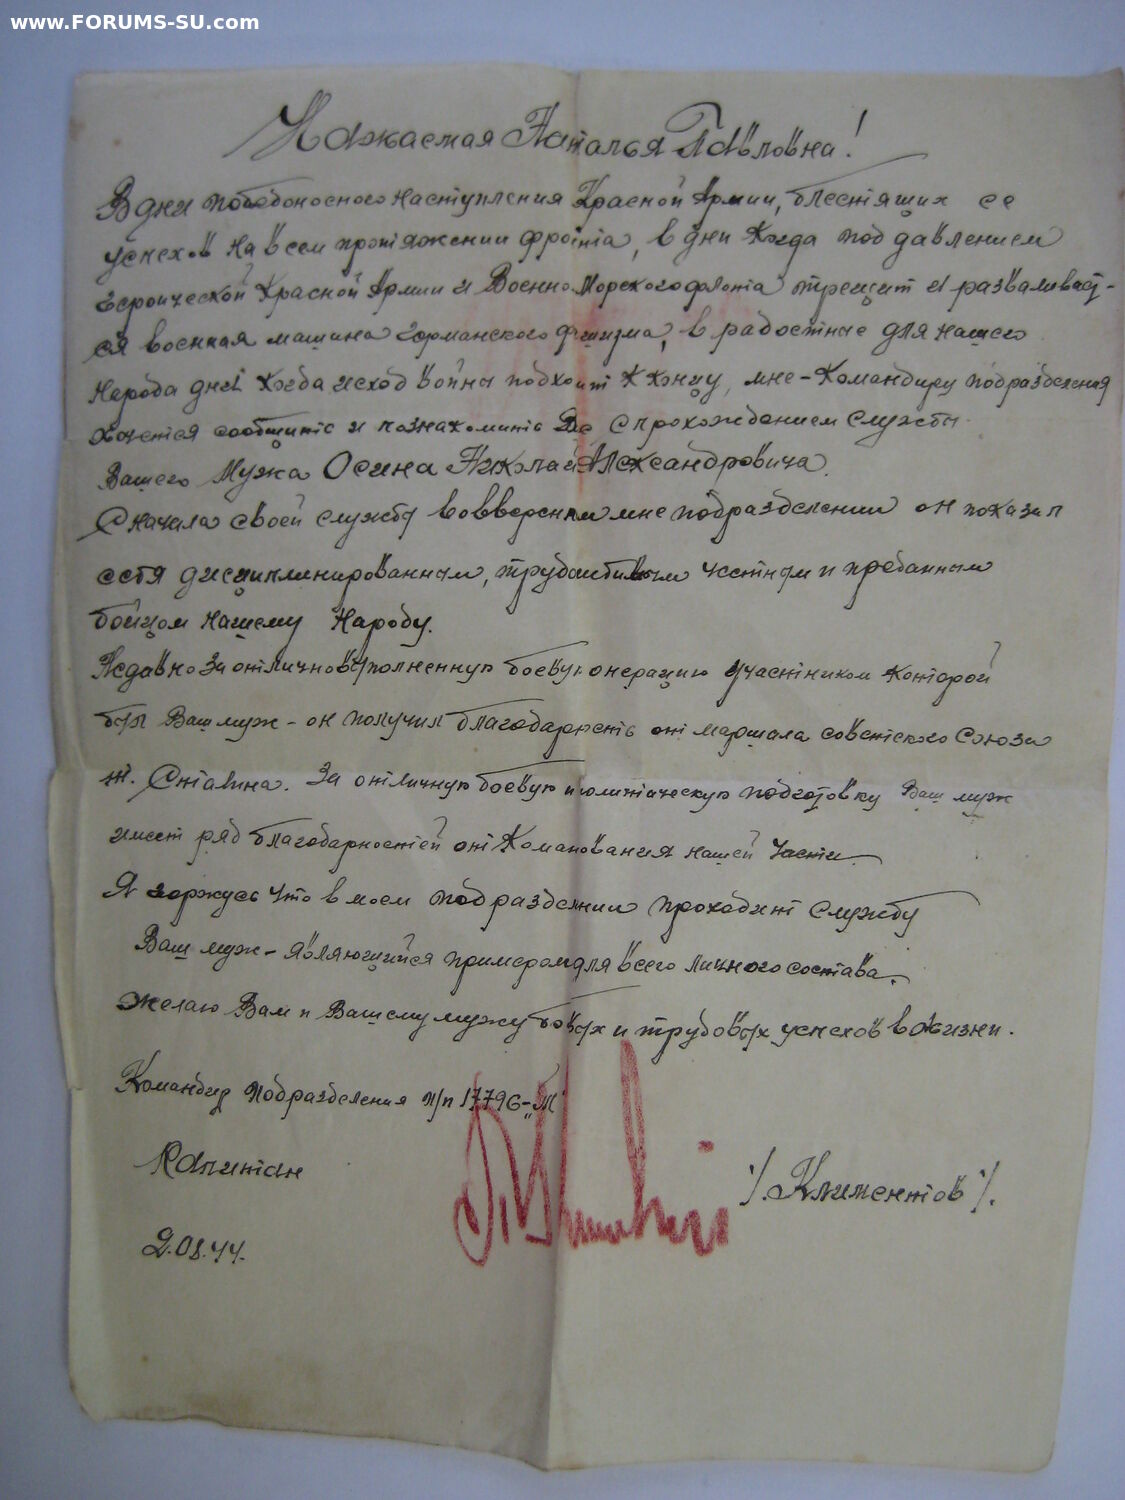 www.FORUMS-SU.com
Уважаемая Наталья Павловна!
В дни победоносного наступления Красной Армии, блестящих ее
успехов на всем протяжении фронта, в дни когда под давлением
героической Красной Армии и Военно Морского флота трещит и разваливает-
ся военная машина германского фашизма, в радостные для нашего
народа дней когда исход войны подходит к концу, мне - командиру подразделения
хочется сообщить и познакомить Вас с прохождением службы
Вашего Мужа Осина Николай Александровича.
С начала своей службы во вверенном мне подразделении он показал
себя дисциплинированным, трудолюбивым честным и преданным
бойцом нашему народу.
Недавно за отлично выполненную боевую операцию участником которой
был Ваш муж - он получил благодарность от маршала советского Союза
т. Сталина. За отличную боевую и политическую подготовку Ваш муж
имеет ряд благодарностей от Командования нашей части.
Я горжусь что в моем подразделении проходит службу
Ваш муж - являющийся примером для всего личного состава.
Желаю Вам и Вашему мужу боевых и трудовых успехов в жизни.
Командир подразделения п/п 17796-„Т"
Капитан /.Климентов/.
2.08.44.